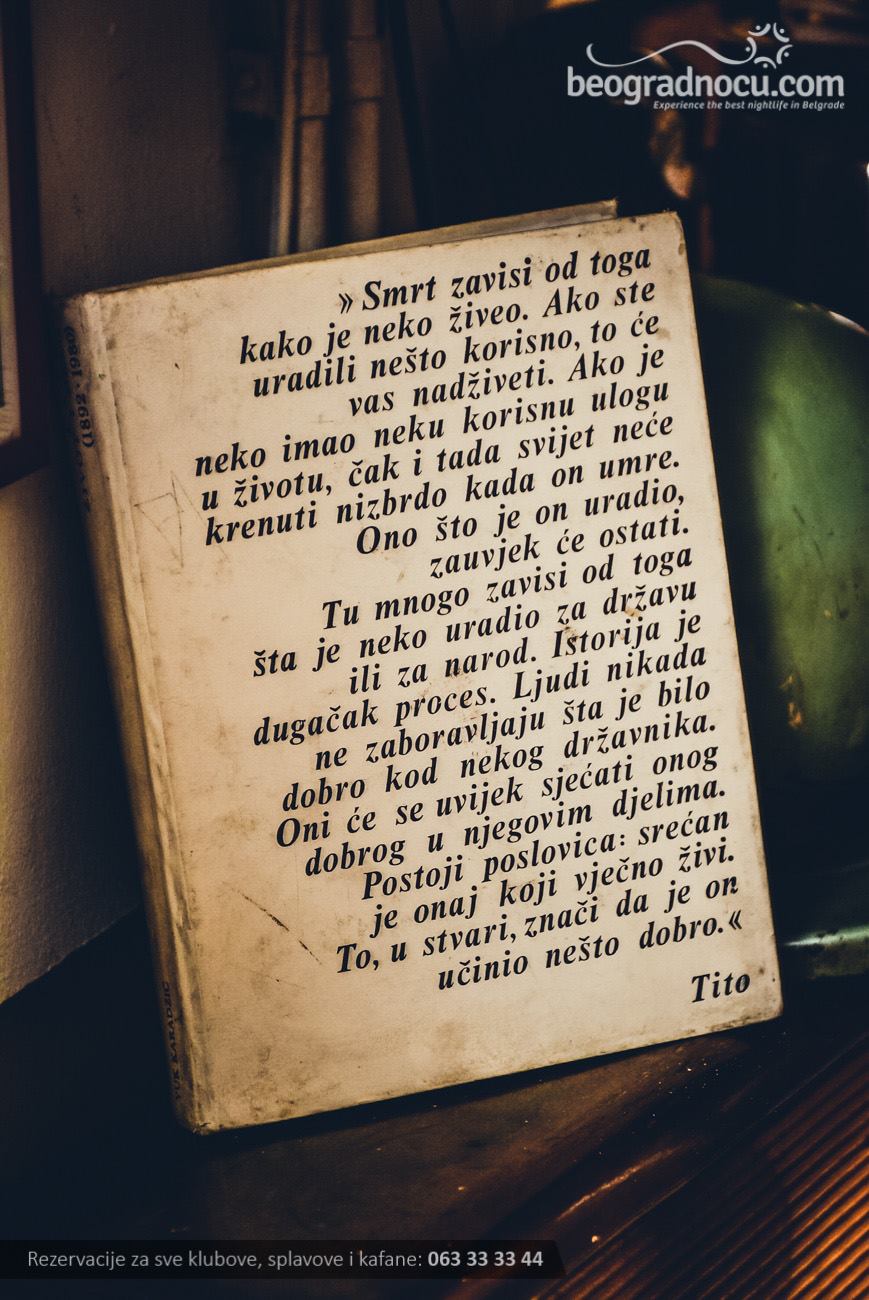 beogradnocu.com
Experience the best nightlife in Belgrade
» Smrt zavisi od toga
kako je neko živeo. Ako ste
uradili nešto korisno, to će
vas nadživeti. Ako je
neko imao neku korisnu ulogu
u životu, čak i tada svijet neće
krenuti nizbrdo kada on umre.
Ono što je on uradio,
zauvjek će ostati.
Tu mnogo zavisi od toga
šta je neko uradio za državu
ili za narod. Istorija je
dugačak proces. Ljudi nikada
ne zaboravljaju šta je bilo
dobro kod nekog državnika.
Oni će se uvijek sjećati onog
dobrog u njegovim djelima.
Postoji poslovica: srećan
je onaj koji vječno živi.
To, u stvari, znači da je on
učinio nešto dobro.«
Tito
(1892 · 1980)
VUK KARADŽIĆ
Rezervacije za sve klubove, splavove i kafane: 063 33 33 44